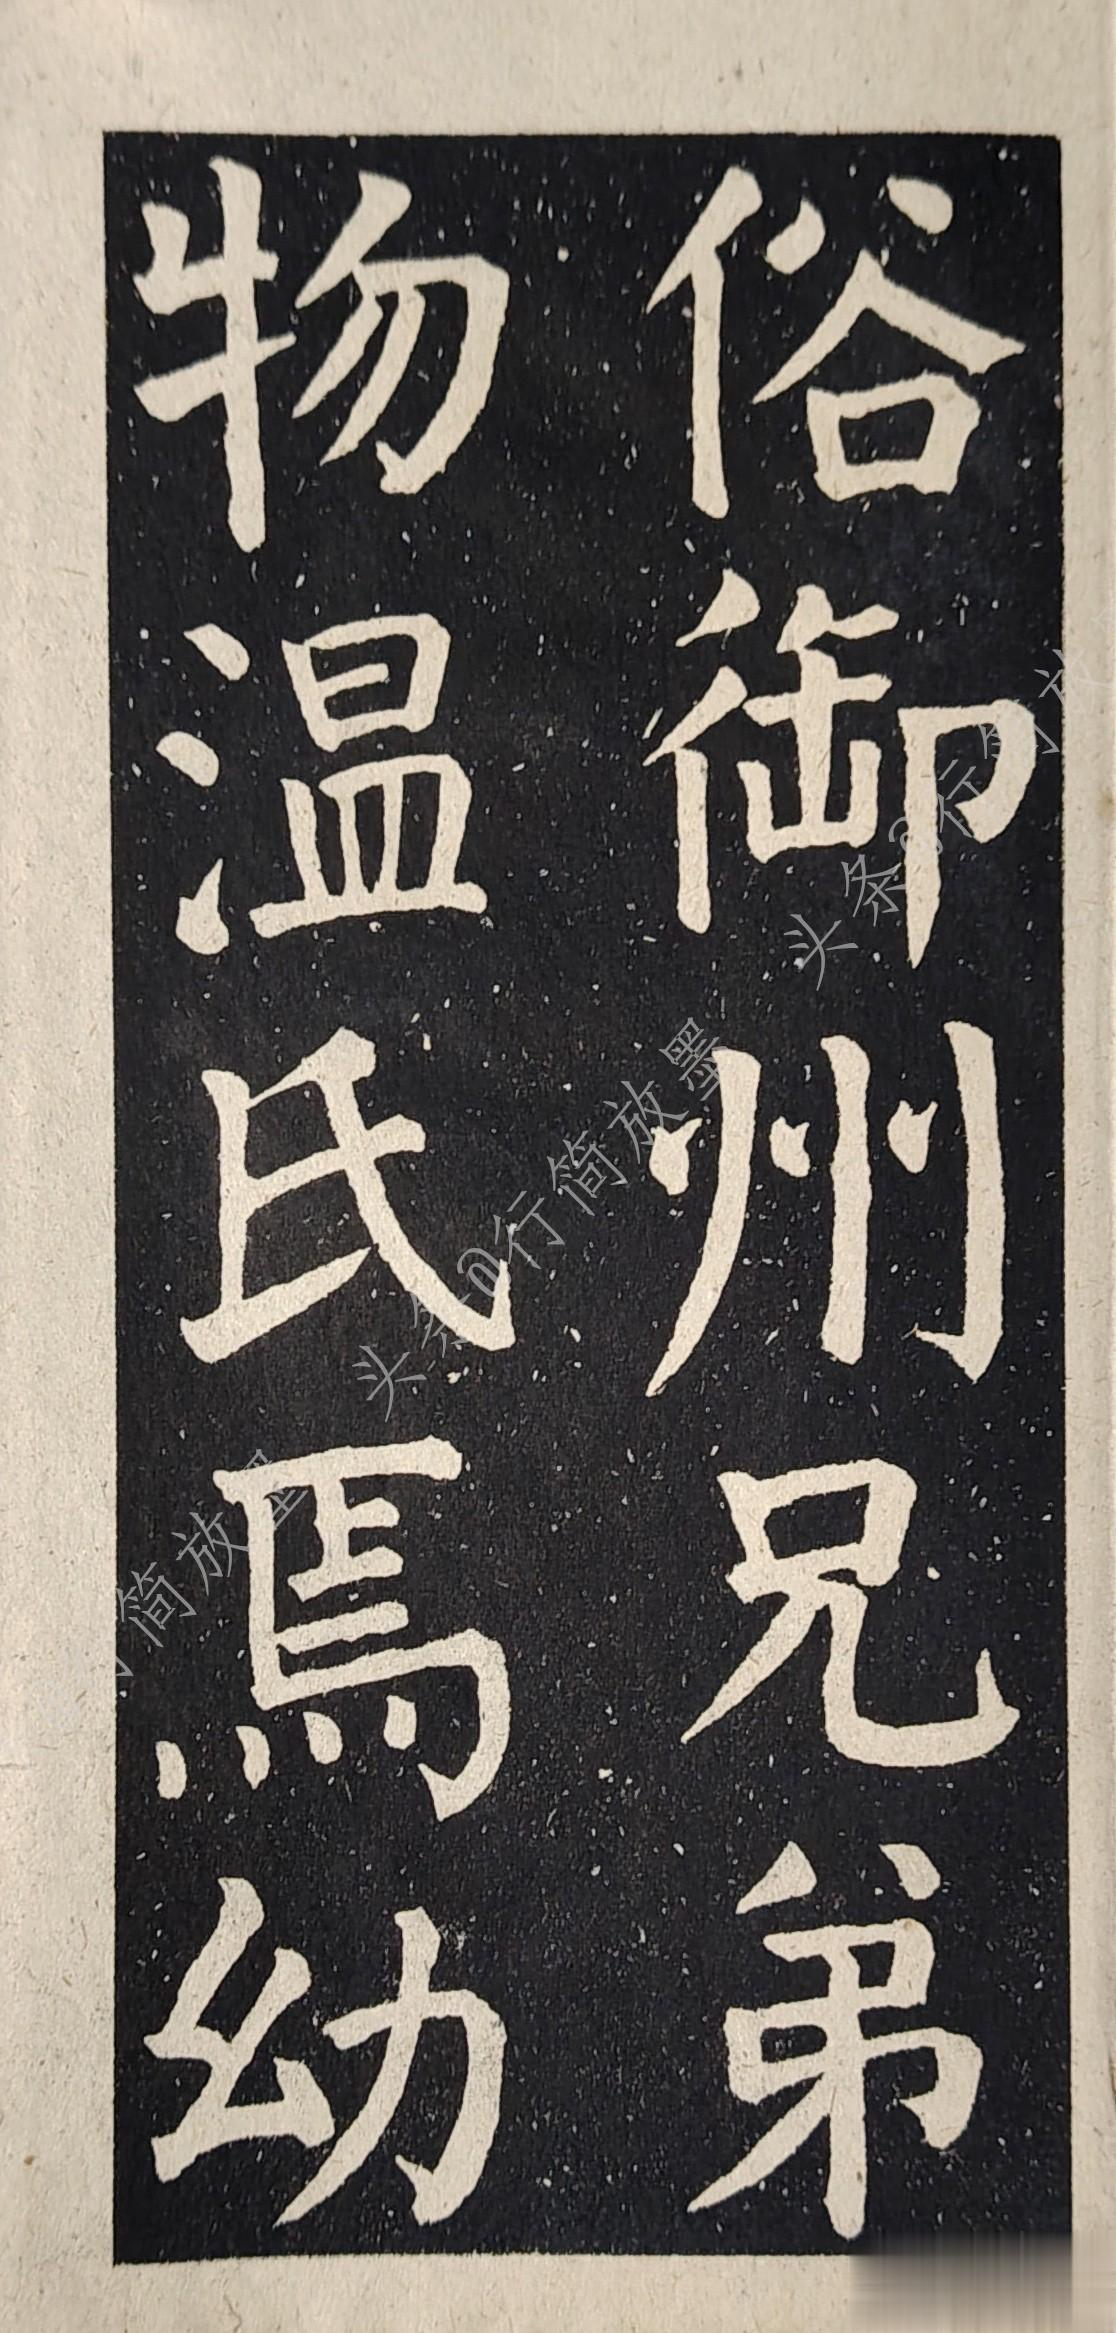 俗御州兄弟
物温氏焉幼
头条@行简放墨
头条@行简放
简放墨